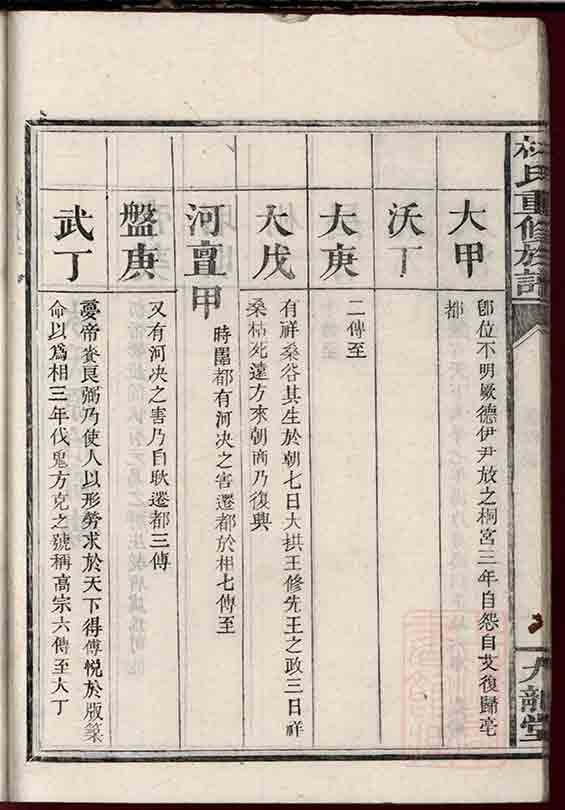 林氏重修族譜
九龍堂
大甲
卽位不明厥德伊尹放之桐宮三年自怨自艾復歸亳
都
沃丁
大庚
二傳至
大戊
有祥桑谷其生於朝七日大拱王修先王之政三日祥
桑枯死遠方來朝商乃復興
河亶甲
時嚚都有河决之害遷都於相七傳至
盤庚
又有河决之害乃自耿遷都三傳
武丁
夢帝賚良弼乃使人以形旁求於天下得傅悅於版築
命以爲相三年伐鬼方克之號稱高宗六傳至大丁